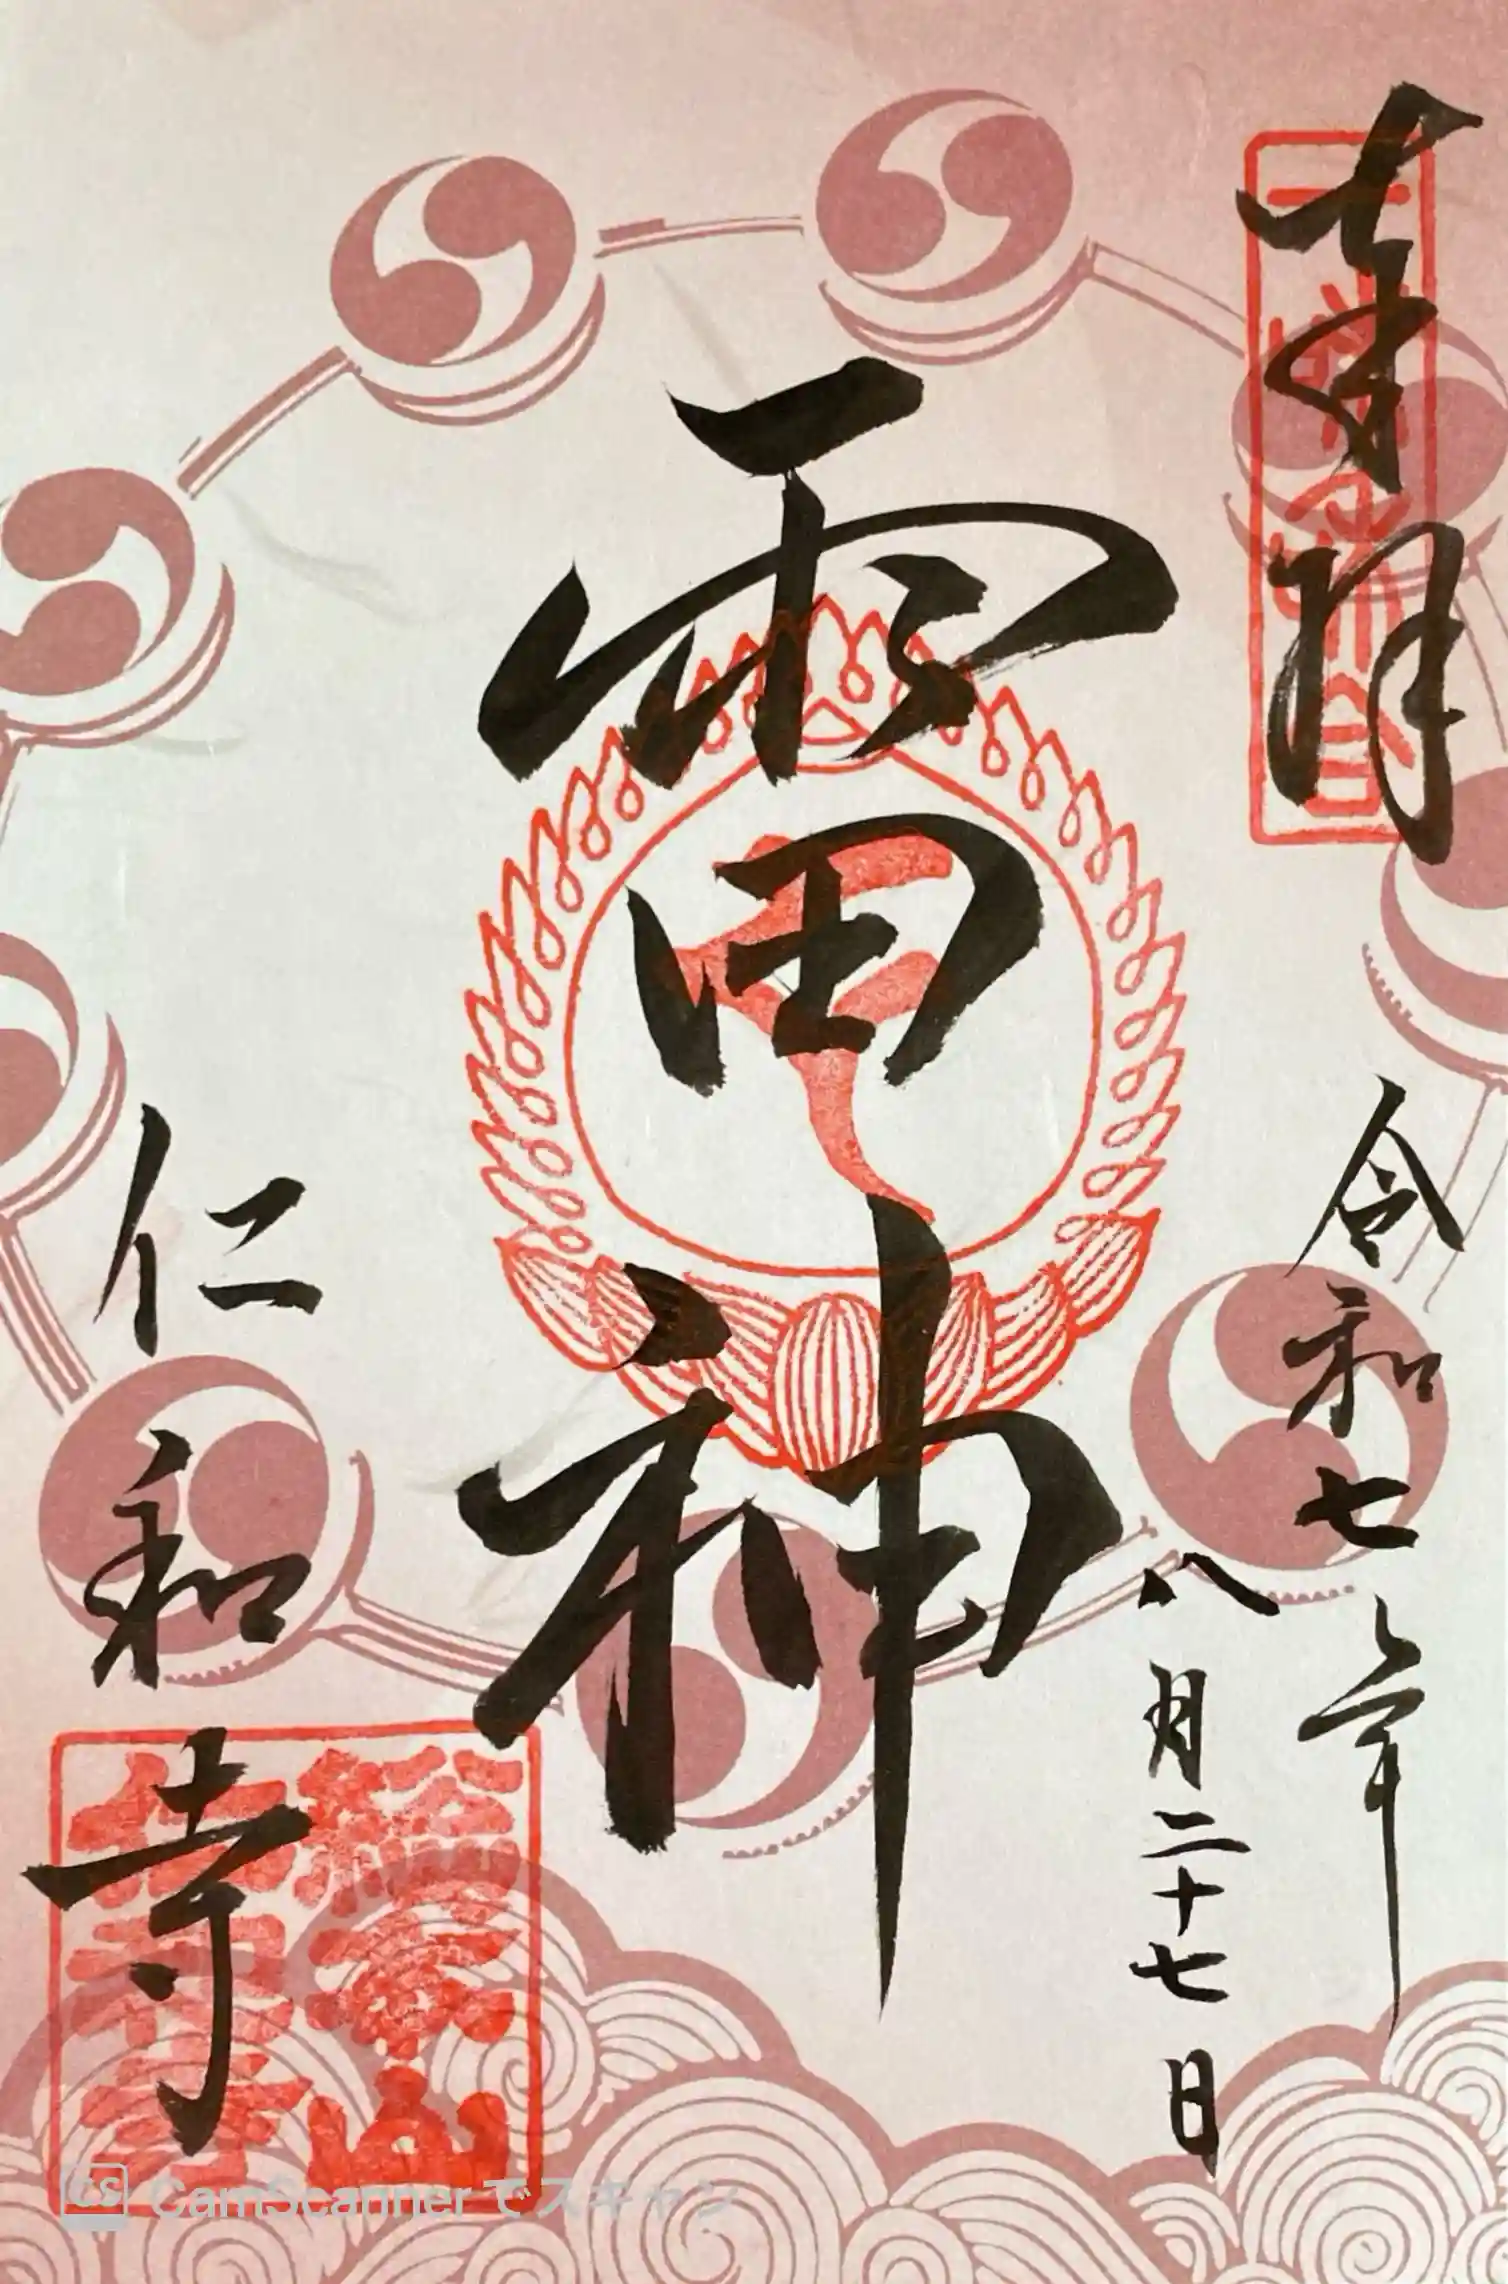 奉拝
令和七年
八月二十七日
雷神
仁和寺
CS CamScannerでスキャン